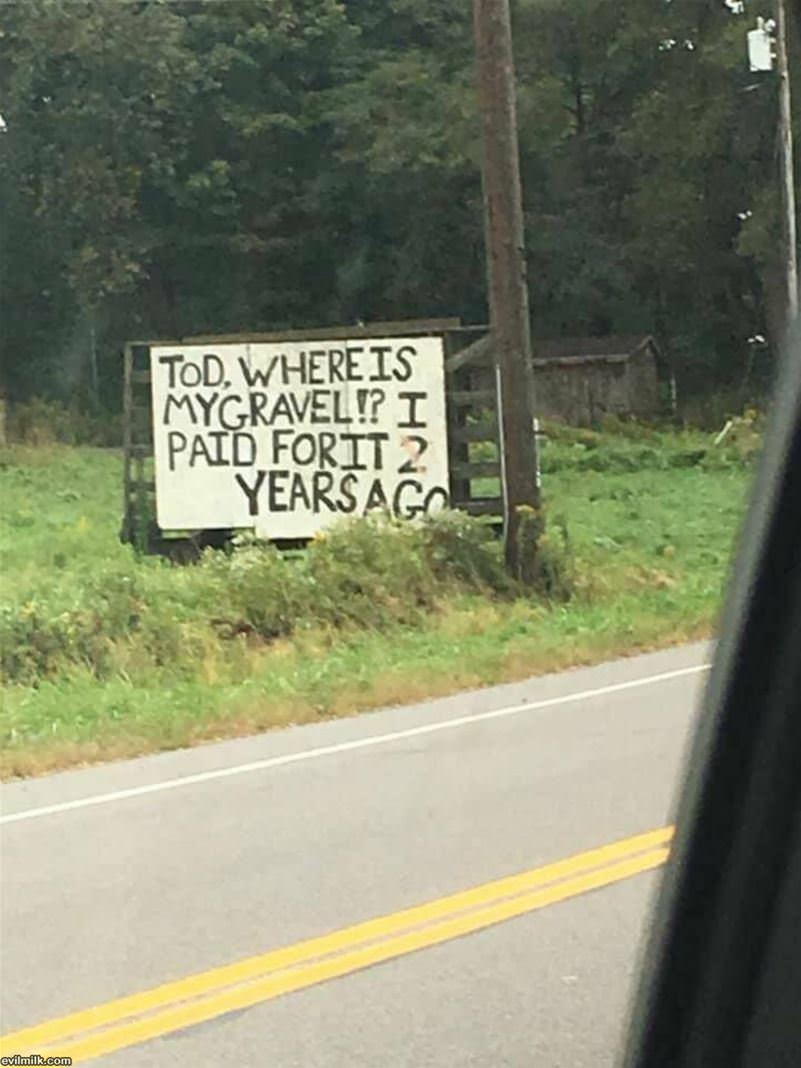 TOD, WHERE IS
MY GRAVEL!? I
PAID FOR IT 2
YEARS AGO
evilmilk.com